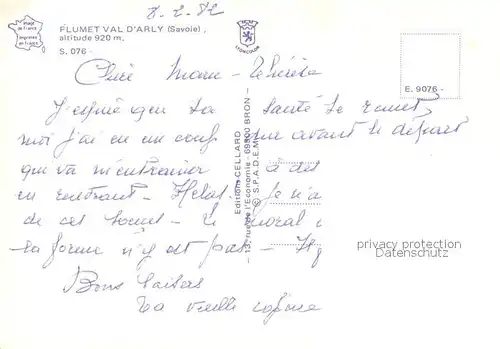 8-2-82
FLUMET VAL D'ARLY (Savoie),
altitude 920 m.
S. 076 -
image de France
imprimée en France
LYONCOLOR
E. 9076 -
Chère Marie-Thérèse
J'espère que ta santé se remet,
moi j'ai eu un coup dur avant le départ
qui va m'entrainer à des
en rentrant - Hélas, Je n'a
de ces - Le moral
la forme n'y est pas -
Bons baisers
Ta vieille copine
Editions CELLARD
13 rue de l'Economie - 69500 BRON
© S.P.A.D.E.M.
privacy protection
Datenschutz